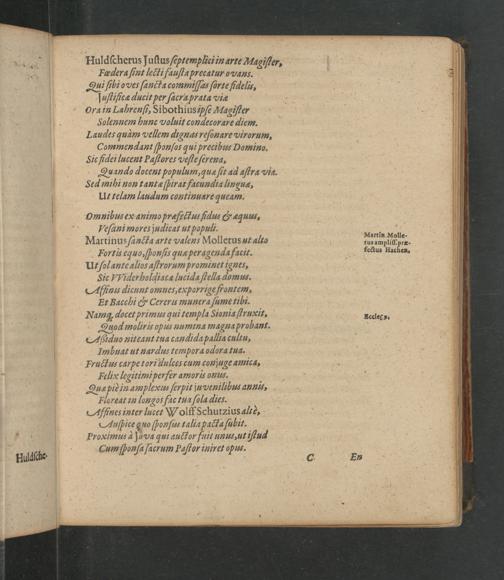 Huldscherus Justus septemplici in arte Magister,
Fœdera sint lecti fausta precatur ovans.
Qui sibi oves sancta commissas sorte fidelis,
Justificæ ducit per sacra prata viæ
Ora in Lahrensi, Sibothius ipse Magister
Solennem hunc voluit condecorare diem.
Laudes quàm vellem dignas resonare virorum,
Commendant sponsos qui precibus Domino.
Sic fidei lucent Pastores veste serena,
Quando docent populum, quæ sit ad astra via.
Sed mihi non tantæ spirat facundia linguæ,
Ut telam laudum continuare queam.
Omnibus ex animo præfectus fidus & æquus,
Vesani mores judicat ut populi.
Martinus sancta arte valens Mollerus ut alto
Fortis equo, sponsis quæ peragenda facit.
Ut sol ante alios astrorum prominet ignes,
Sic Widerholdiacæ lucida stella domus.
Affinis dicunt omnes, exporrige frontem,
Et Bacchi & Cereris munera sume tibi.
Namq; docet primus qui templa Sionia struxit,
Quod moliris opus numina magna probant.
Assiduo niteant tua candida pallia cultu,
Imbuat ut nardus tempora odora tua.
Fructus carpe tori dulces cum conjuge amica,
Felix legitimi perfer amoris onus.
Quæ piè in amplexus serpit juvenilibus annis,
Floreat in longos fac tua sola dies.
Affines inter lucet Wolff Schutzius altè,
Auspice quo sponsus talia pacta subit.
Proximus à Jova qui auctor fuit unus, ut istud
Cum sponsa sacrum Pastor iniret opus.
C En
Martin Molle-
rus ampliss. præ-
fectus Hachen.
Eccles. 9.
Huldsche-